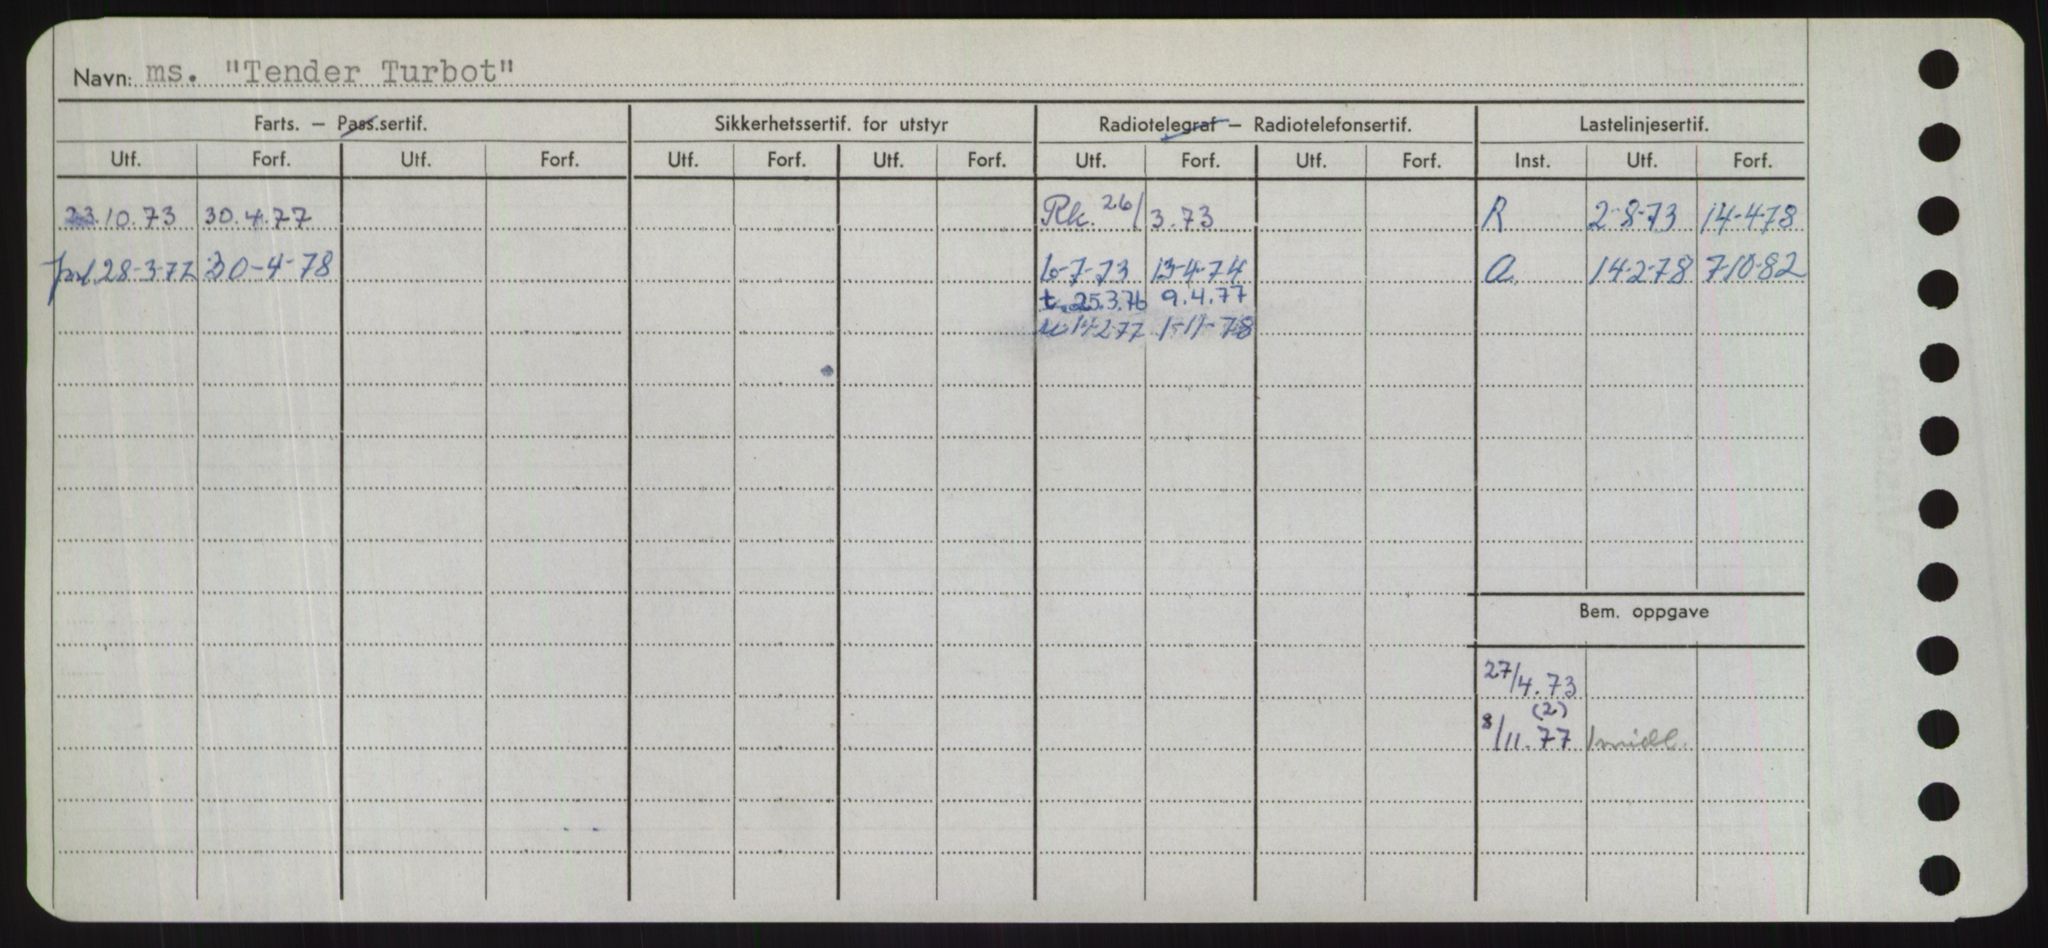 Navn: ms. "Tender Turbot"
Farts. — Pass.sertif. Sikkerhetssertif. for utstyr Radiotelegraf — Radiotelefonsertif. Lastelinjesertif.
Utf. Forf. Utf. Forf. Utf. Forf. Utf. Forf. Utf. Forf. Utf. Forf. Inst. Utf. Forf.
23.10.73 30.4.77 Rk. 26/3.73 R 2-8-73 14-4-78
28-3-77 30-4-78 6-7-73 13-4-74 a. 14-2-78 7-10-82
t. 25.3.76 9.4.77
14-2-77 1-11-78
Bem. oppgave
27/4.73
(2)
8/11.77